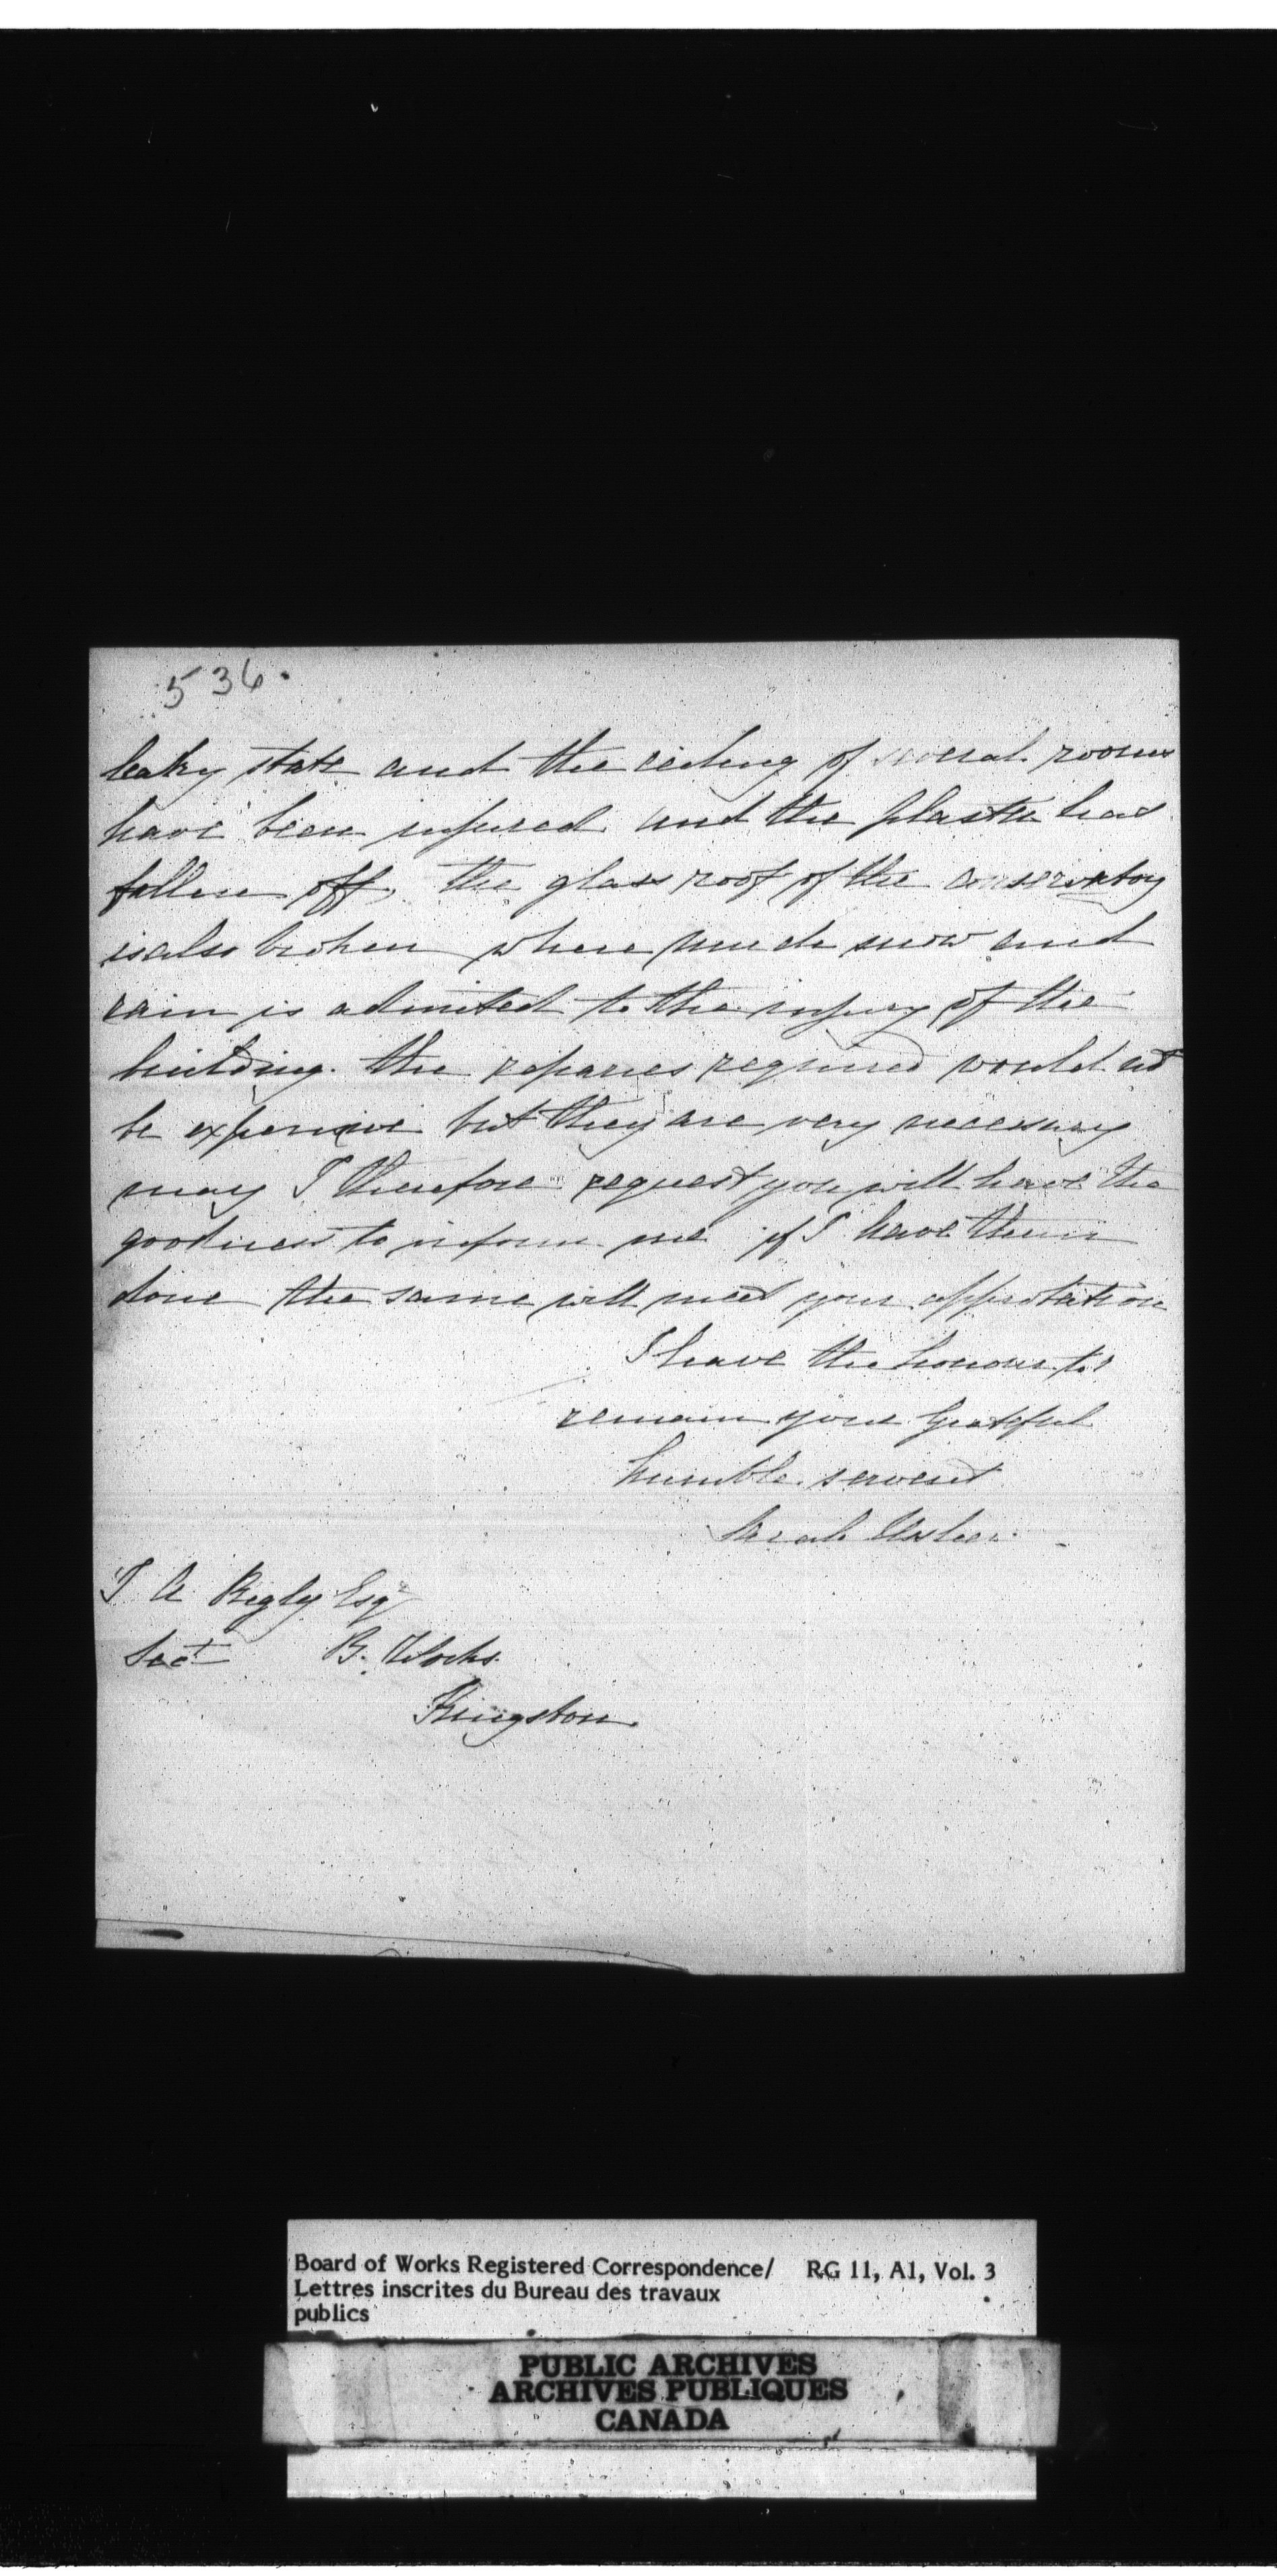 536.
leaky state and the cieling of several rooms
have been injured and the plaster has
fallen off, the glass roof of the conservatory
is also broken where much snow and
rain is admited to the injury of the
building. the repaires required would not
be expensive but they are very necessary
may I therefore request you will have the
goodness to inform me if I have them
done the same will meet your approbation
I have the honour to
remain your grateful
humble servent
Sarah Usher
T A Begly Esqr
Sect B. Works.
Kingston.
Board of Works Registered Correspondence/ RG 11, A1, Vol. 3
Lettres inscrites du Bureau des travaux
publics
PUBLIC ARCHIVES
ARCHIVES PUBLIQUES
CANADA